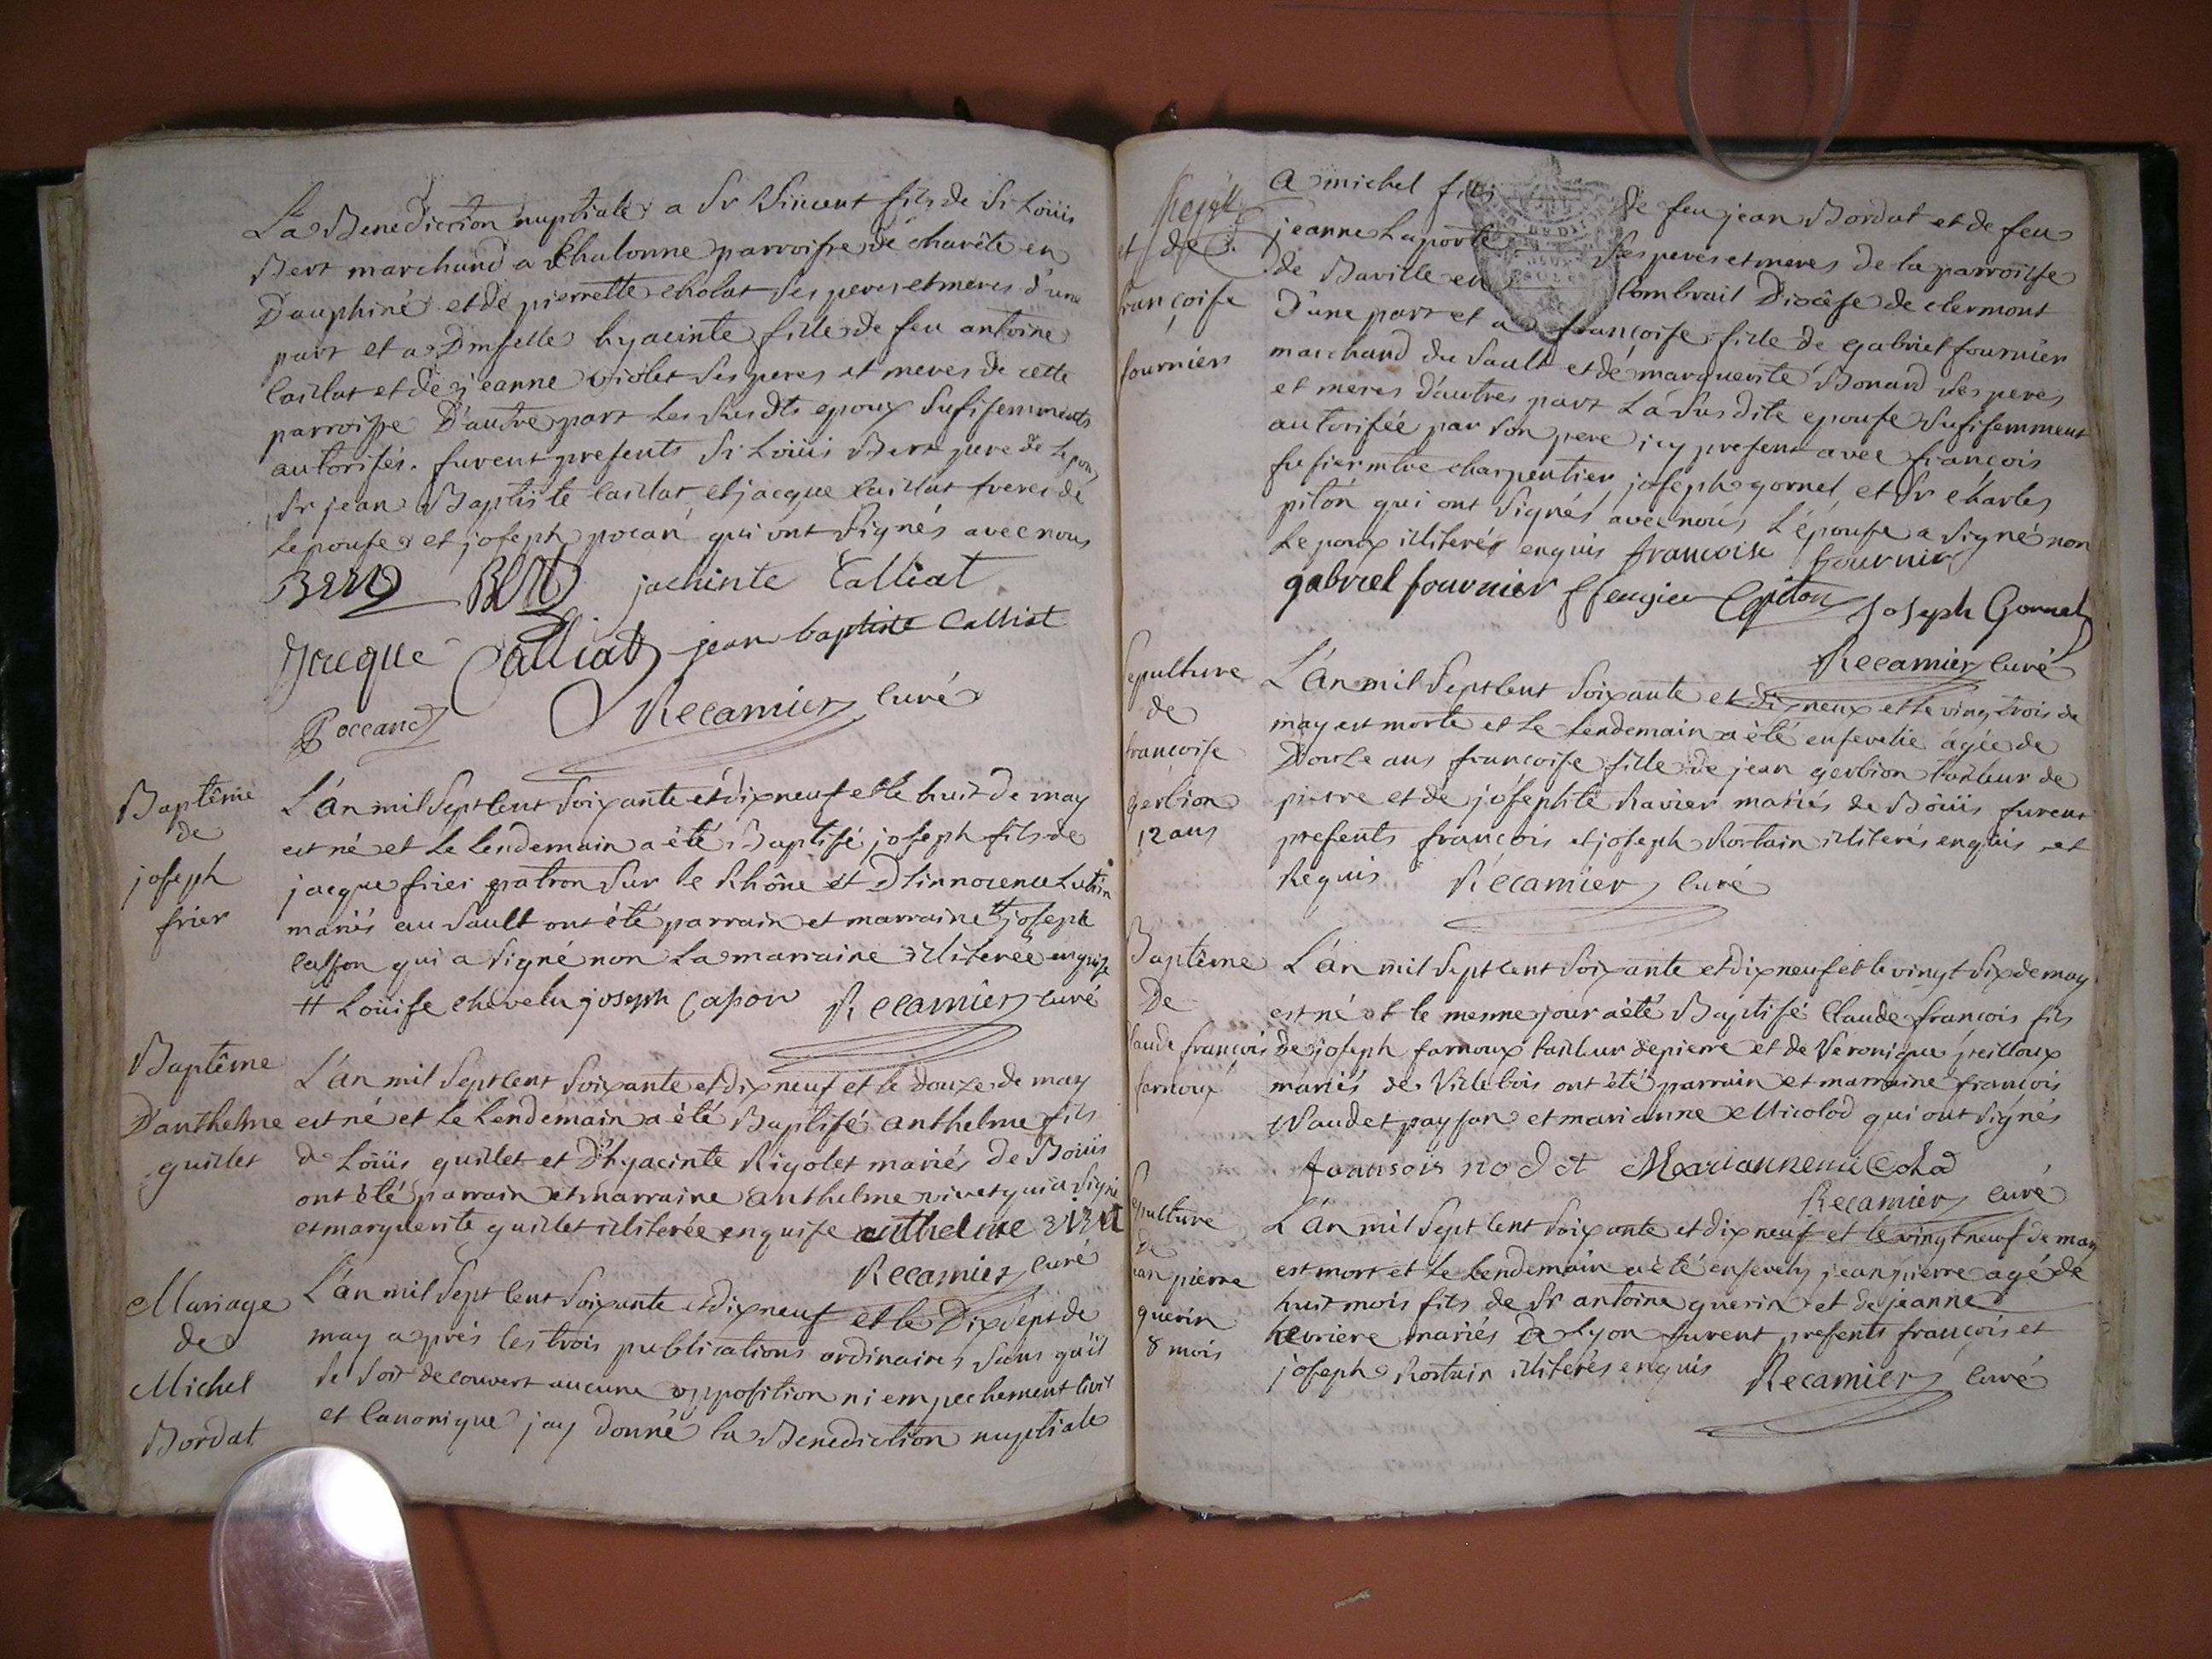 La Benediction nuptiale a Sr Vincent fils de Sr Loüis
Bert marchand a Chulonne parroisse de charête en
Dauphiné et de pierrette cholat Ses peres et meres d'une
part et a Dmselle hyacinte fille de feu antoine
Caillat et de jeanne violet Ses peres et meres de cette
parroisse D'autre part Les Susdts epoux Sufisemments
autorisés. furent presents Sr Loüis Bert pere de Lepoux
Sr jean Baptiste Caillat et jacque Caillat freres de
Lepouse et joseph pocan qui ont Signés avec nous
Bert Bert jachinte Calliat
Jacque Calliat jean baptiste Calliat
Poccand Recamier Curé
Baptême
de
joseph
frier
L'an mil Sept Cent Soixante et dix neuf et le huit de may
est né et Le Lendemain a èté Baptisé joseph fils de
jacque frier patron Sur le Rhône et D'innocence Lutin
mariés au Sault ont èté parrain et marraine # joseph
Casson qui a Signé non La marraine illiterée enquise
# Loüise chevelu joseph Capon Recamier Curé
Baptême
D'anthelme
guillet
L'an mil Sept Cent Soixante et dix neuf et le douze de may
est né et Le Lendemain a èté Baptisé anthelme fils
de Loüis guillet et D'hyacinte Rigolet mariés de Boüis
ont èté parrain et marraine anthelme vivet qui a Signé
et marguerite guillet illiterée enquise anthelme vivet
Recamier Curé
Mariage
de
Michel
Bordat
L'an mil Sept Cent Soixante et dix neuf et le Dix Sept de
may aprés les trois publications ordinaires Sans qu'il
Se Soit decouvert aucune opposition ni empechement Civil
et Canonique jay donné la Benediction nuptiale
et de
françoise
fournier
A michel fils de feu jean Bordat et de feue
jeanne Laporte Ses peres et meres de la parroisse
de Baville en Combrail Diocêse de clermont
D'une part et a françoise fille de gabriel fournier
marchand du Sault et de marguerite Bonard Ses peres
et meres d'autres part La Susdite epouse Sufisemment
autorisée par Son pere icy present avec françois
fusier mtre charpentier joseph gornet et Sr charles
pitôn qui ont Signés avec nous L'épouse a Signé non
Lepoux illiterés enquis francoise fournier
gabriel fournier f feugier C piton Joseph Gornet
Recamier Curé
Sepulture
de
francoise
gerbion
12 ans
L'an mil Sept Cent Soixante et dix neux et le vingt trois de
may est morte et Le Lendemain a èté ensevelie âgée de
Douze ans francoise fille de jean gerbion tailleur de
pierre et de joséphte Ravier mariés de Boüis furent
presents francois et joseph Rortain illiterés enquis et
Requis Récamier Curé
Baptême
De
Claude françois
farnoux
L'an mil Sept Cent Soixante et dix neuf et le vingt Six de may
est né et le mesme jour a èté Baptisé Claude françois fils
de joseph farnoux tailleur de pierre et de Veronique peilloux
mariés de Villebois ont èté parrain et marraine francois
Naudet paysan et marianne Micolod qui ont Signés
fransois nodet Marianne mi Colod
Recamier Curé
Sepulture
de
jean pierre
guerin
8 mois
L'an mil Sept Cent Soixante et dix neuf et le vingt neuf de may
est mort et Le Lendemain a èté ensevely jean pierre agé de
huit mois fils de Sr antoine guerin et de jeanne
hevriere mariés de Lyon furent presents françois et
joseph Rortain illiterés enquis Recamier Curé